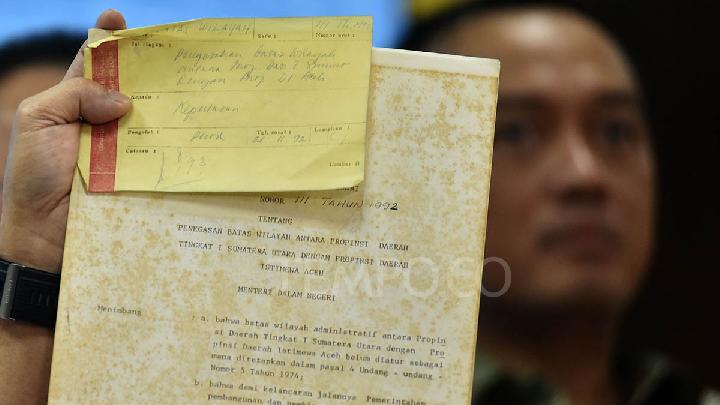 Kode :
Nomor urut :
III Th. 1992
Isi ringkas :
Penegasan Batas Wilayah
antara Prop Dati I Sumut
dengan Prop DI Aceh
Kepada :
Keputusan
Pengolah :
Tgl. surat :
Lampiran :
21.11.92
Catatan :
93
Lembar II
NOMOR III TAHUN 1992
TENTANG
PENEGASAN BATAS WILAYAH ANTARA PROPINSI DAERAH
TINGKAT I SUMATERA UTARA DENGAN PROPINSI DAERAH
ISTIMEWA ACEH
TEMPO.CO
MENTERI DALAM NEGERI
Menimbang : a. bahwa batas wilayah administratif antara Propin
si Daerah Tingkat I Sumatera Utara dengan Pro
pinsi Daerah Istimewa Aceh belum diatur sebagai
mana ditetapkan dalam pasal 4 Undang - undang -
Nomor 5 Tahun 1974;
b. bahwa demi kelancaran jalannya Pemerintahan
pembangunan dan